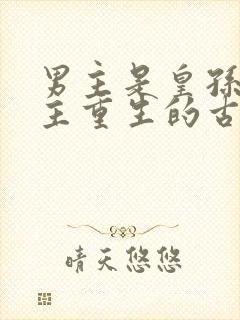 男主是皇孙
主重生的古
晴天悠悠